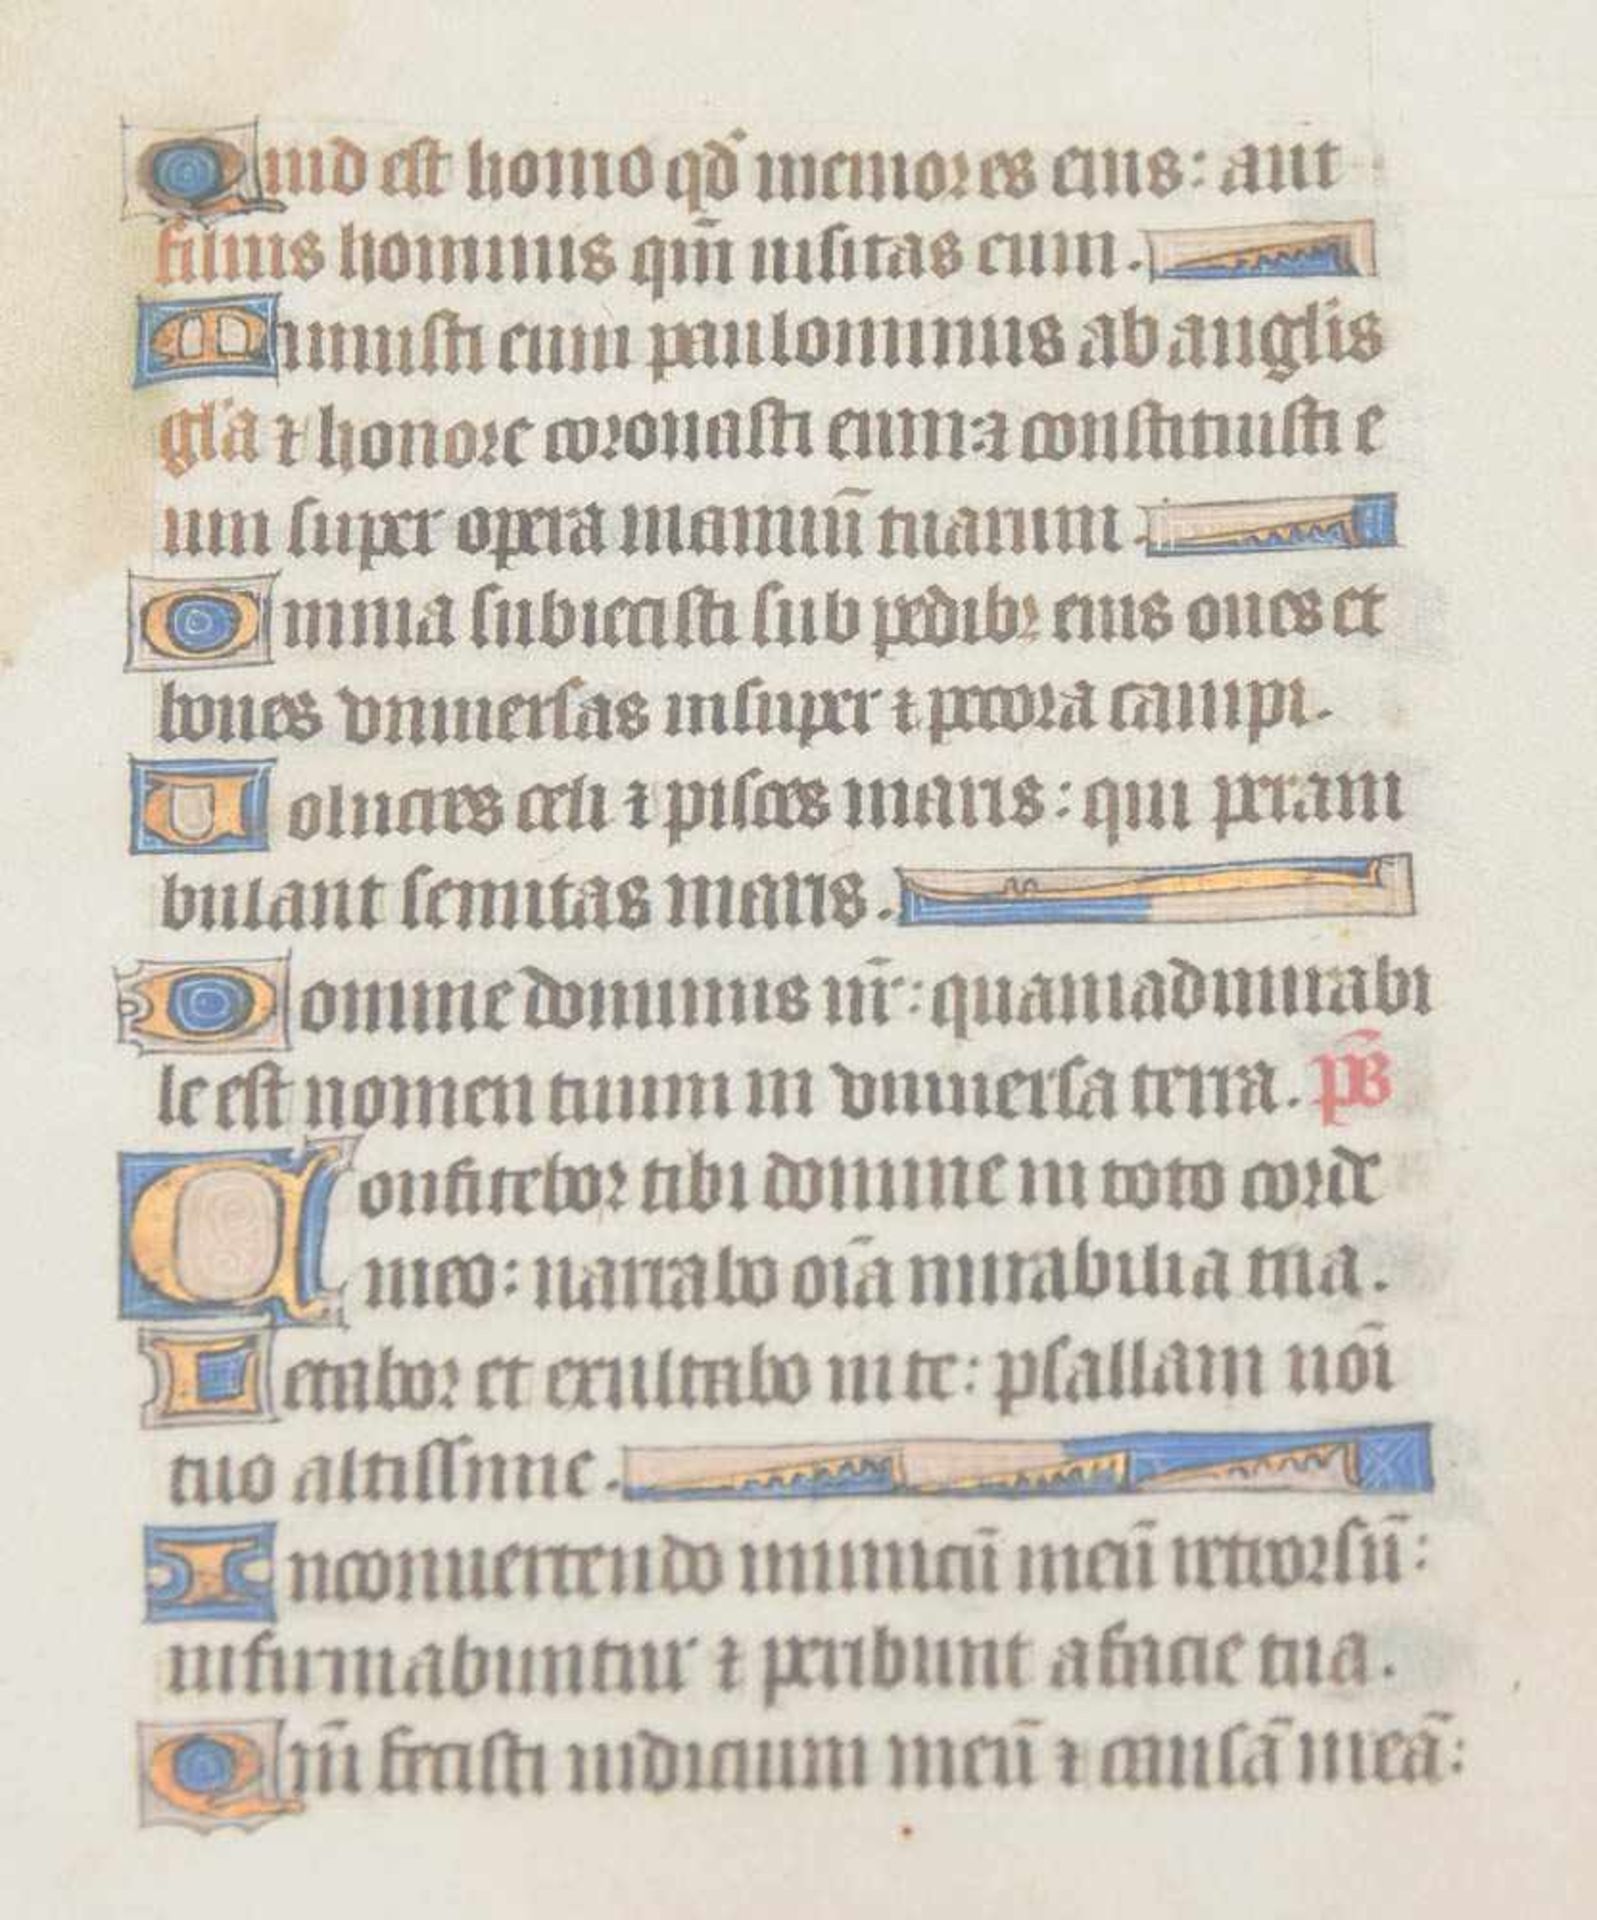 Quid est homo qd̄ memor es eius: aut
filius hominis qm̄ uisitas eum.
Minuisti eum paulominus ab anglis
gl̄a ⁊ honore coronasti eum: ⁊ constituisti e
um super opera manuū tuarum.
Omnia subiecisti sub pedibꝫ eius oues et
boues vniuersas insuper ⁊ pecora campi.
Uolucres celi ⁊ pisces maris: qui peram
bulant semitas maris.
Domine dominus nr̄: quam admirabi
le est nomen tuum in vniuersa terra. ps̄
Confitebor tibi domine in toto corde
meo: narrabo oīa mirabilia tua.
Letabor et exultabo in te: psallam noī
tuo altissime.
In conuertendo inimicū meū retrorsū:
infirmabuntur ⁊ peribunt a facie tua.
Qm̄ fecisti iudicium meū ⁊ causā meā: